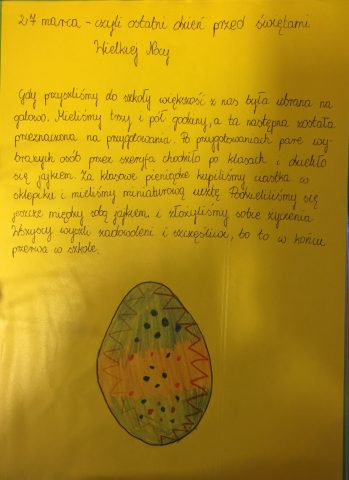 27 marca - czyli ostatni dzień przed świętami
Wielkiej Nocy
Gdy przyszliśmy do szkoły większość z nas była ubrana na
galowo. Mieliśmy trzy i pół godziny, a ta następna została
przeznaczona na przygotowania. Po przygotowaniach parę wy-
branych osób przez szeryfa chodziło po klasach i dzieliło
się jajkiem. Za klasowe pieniądze kupiliśmy ciastka w
sklepiku i mieliśmy miniaturową ucztę. Podzieliliśmy się
jeszcze między sobą jajkiem i złożyliśmy sobie życzenia.
Wszyscy wyszli zadowoleni i szczęśliwi, bo to w końcu
przerwa w szkole.